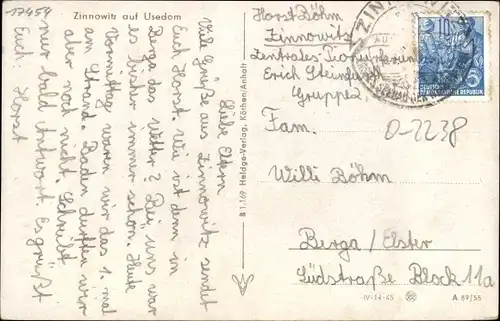 17454
Zinnowitz auf Usedom
Liebe Eltern
Viele Grüße aus Zinnowitz sendet
Euch Horst. Wie ist denn in
Berga das Wetter? Bei uns war
es bisher immer schön. Heute
Vormittag waren wir das 1. mal
am Strand. Baden durften wir
aber noch nicht. Schreibt
mir bald Antwort. Es grüßt
Euch. Horst
B 1.169 Heldge-Verlag, Köthen/Anhalt
Horst Böhm
Zinnowitz
Zentrales Pionierlager
Erich Steinfurth
Gruppe 2
ZINNOWITZ
10
5
DEUTSCHE
DEMOKRATISCHE REPUBLIK
Fam.
0-2238
Willi Böhm
Berga/Elster
Südstraße Block 11a
IV-14-45
A 89/55